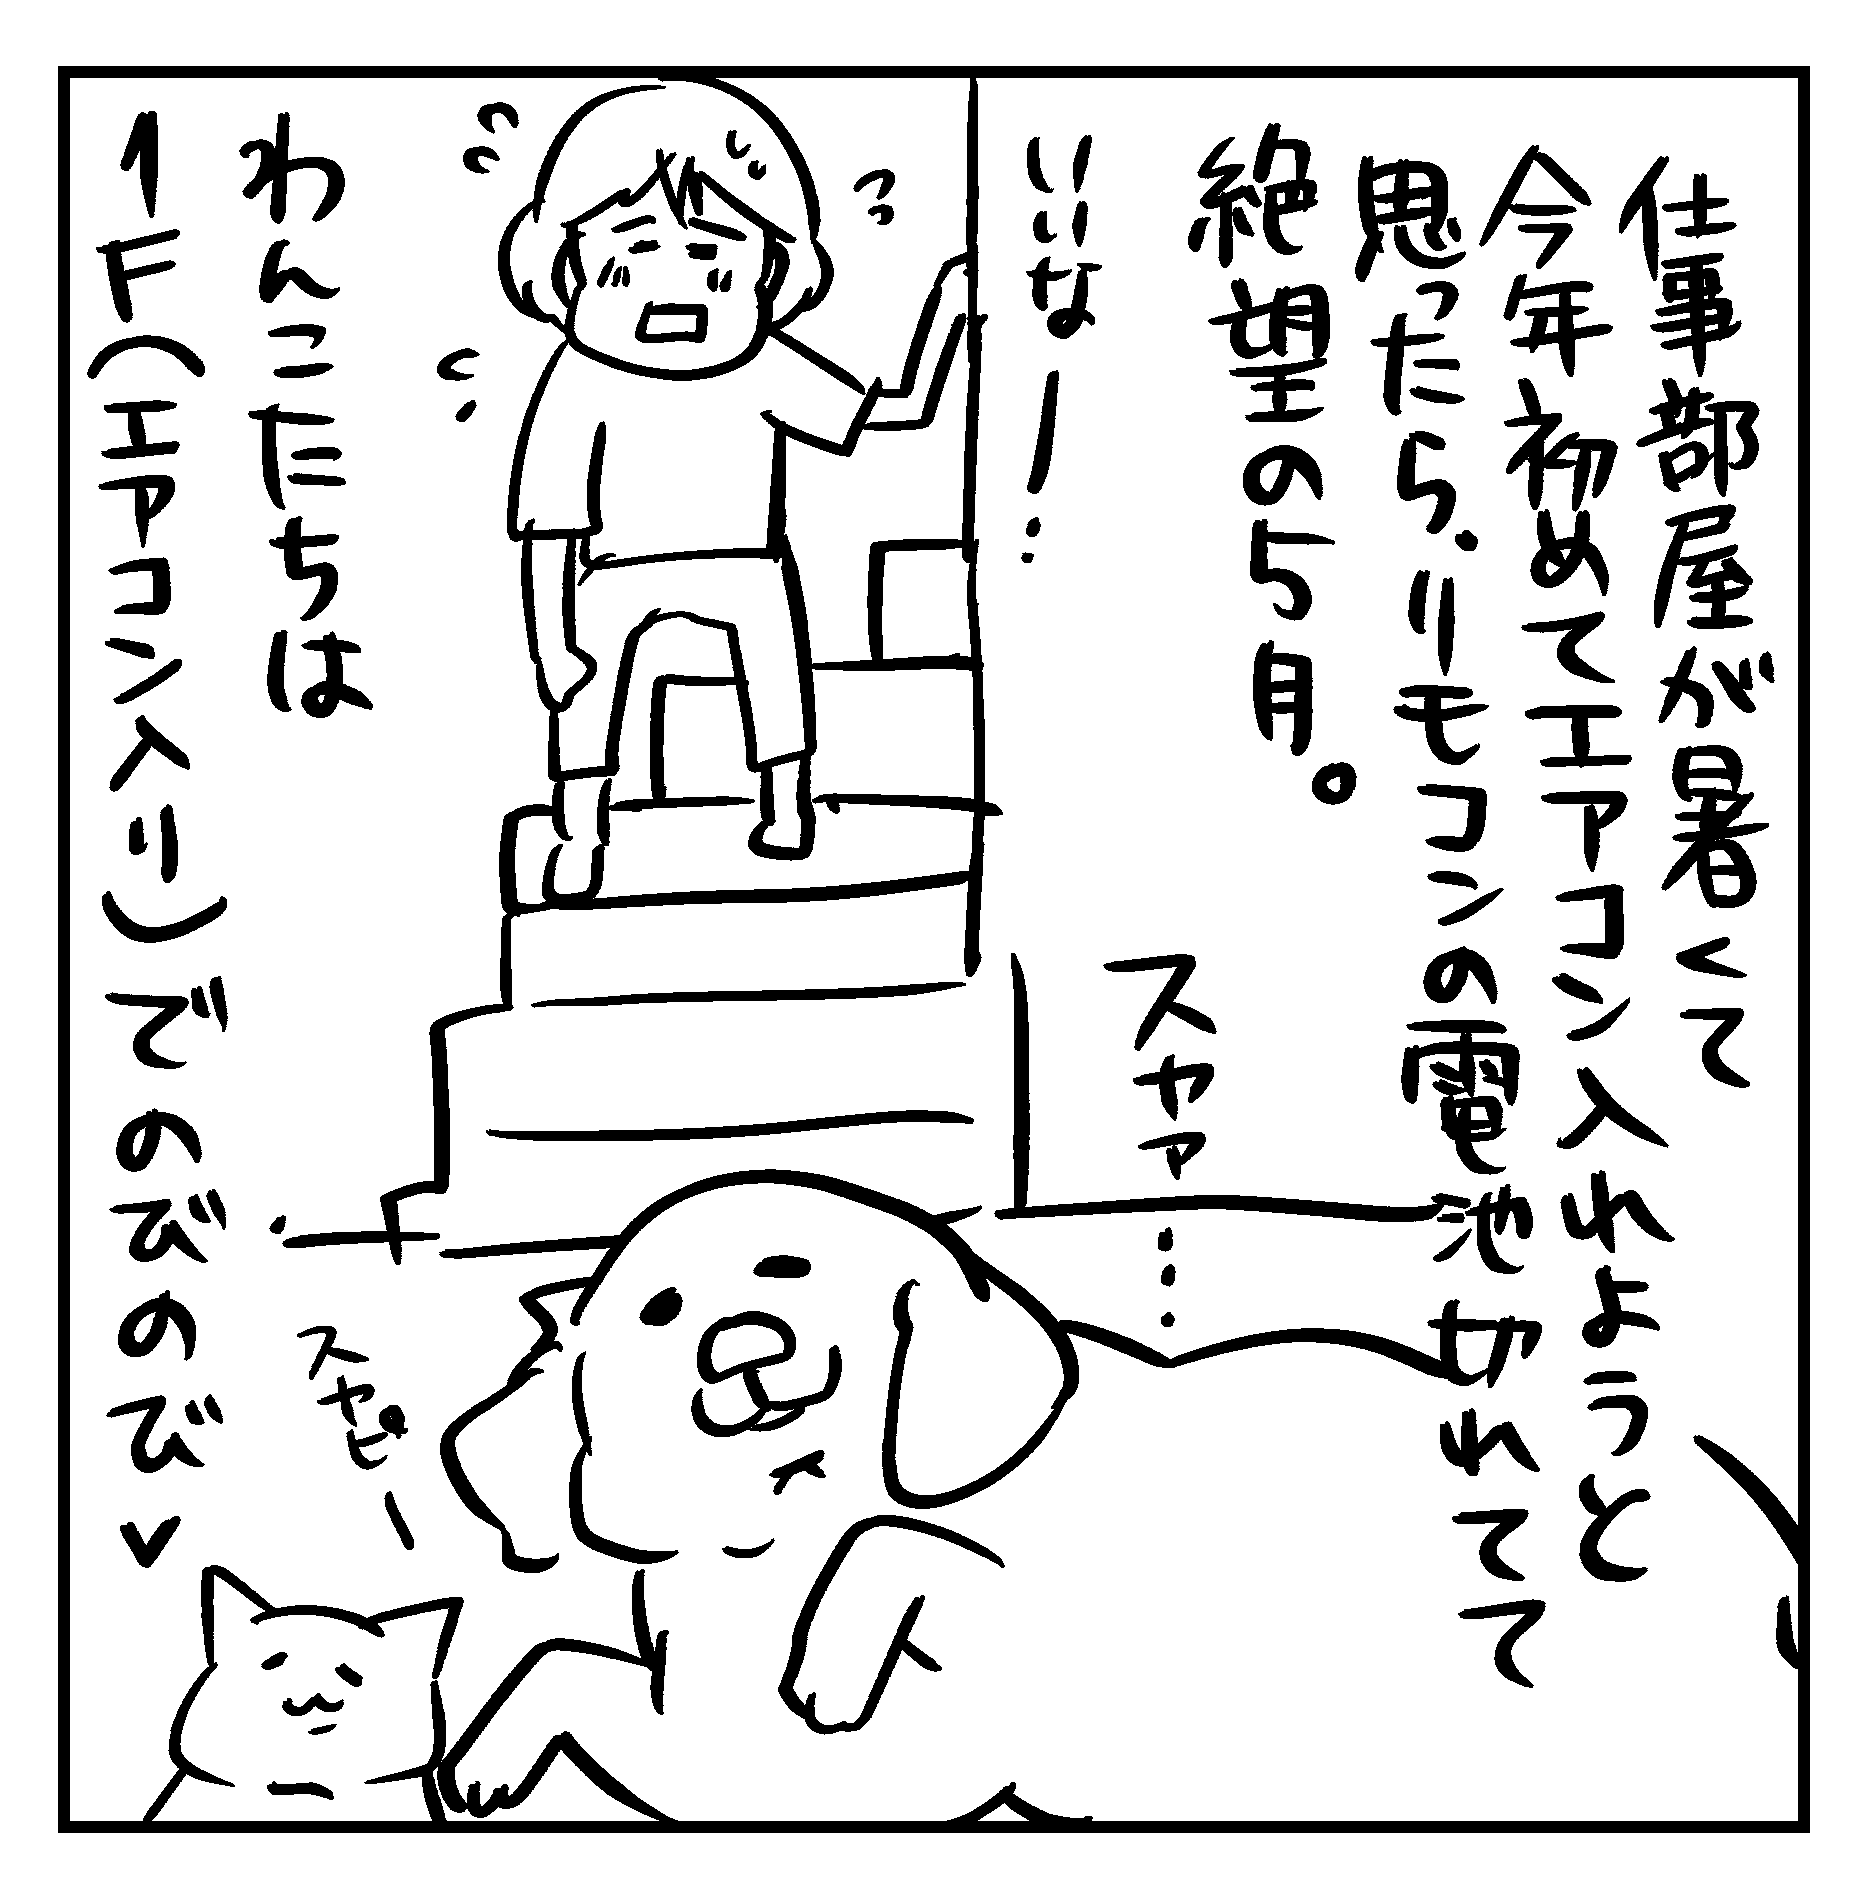 仕事部屋が暑くて
今年初めてエアコン入れようと
思ったら、リモコンの電池切れてて
絶望の5月。
いいなー…
スヤァ…
わんこたちは
1F(エアコン入り)でのびのび
スヤピー